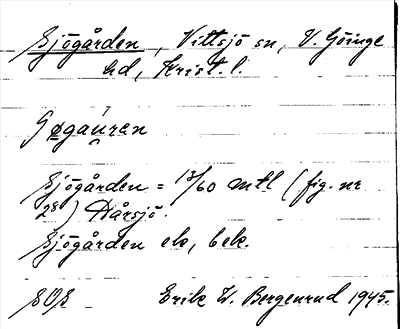 Sjögården, Vittsjö sn, V. Göinge
hd, Krist. l.
Sjögården = 13/60 mtl (fig. nr
28) Hårsjö.
Sjögården ek, bek.
SOS Erik W. Bergenrud 1945.